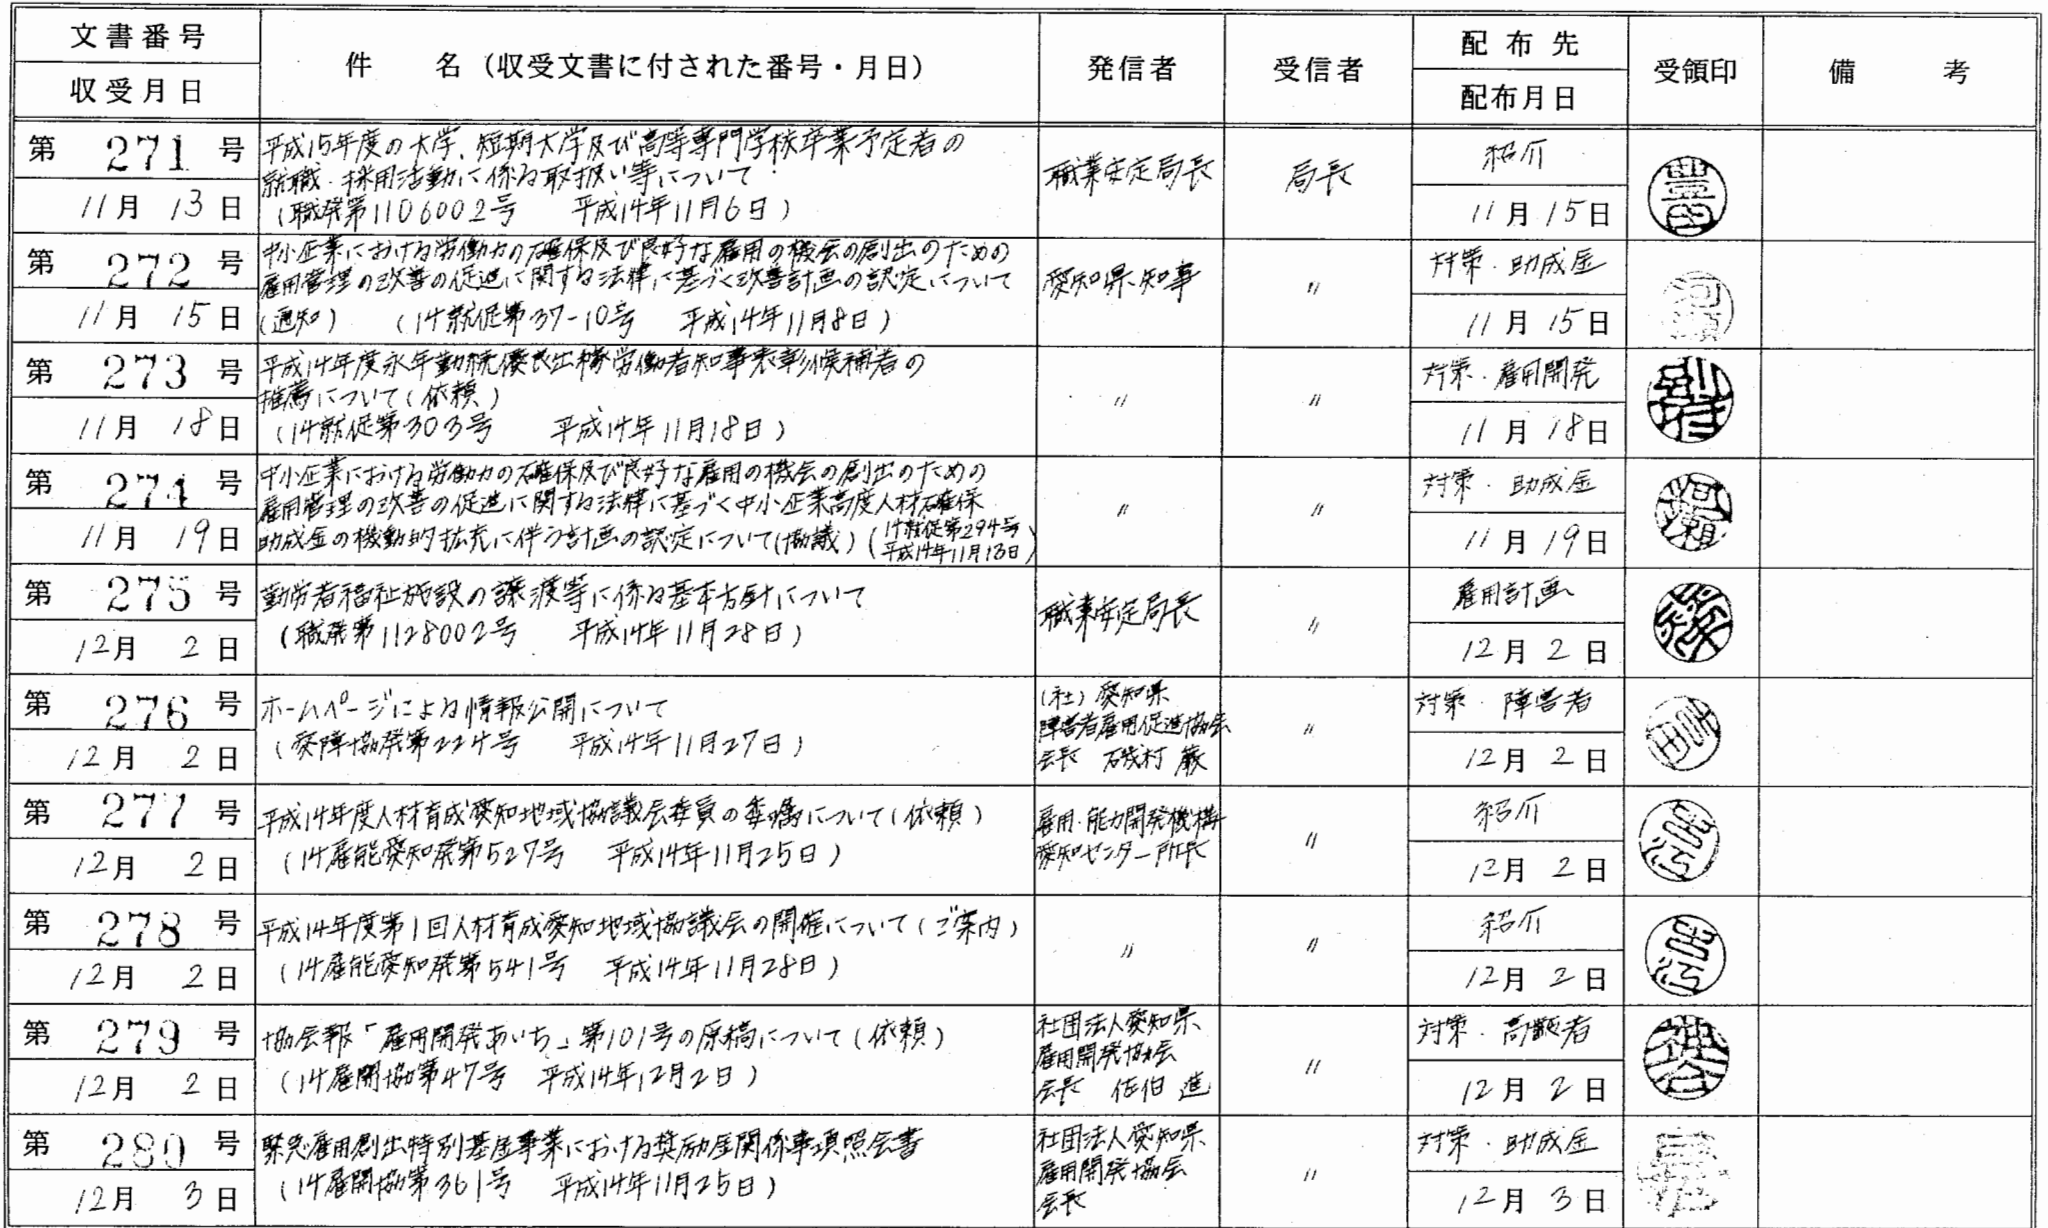 文書番号
収受月日
件 名（収受文書に付された番号・月日）
発信者
受信者
配布先
配布月日
受領印
備 考
第 271 号
11月 13日
平成15年度の大学、短期大学及び高等専門学校卒業予定者の
就職・採用活動に係る取扱い等について
（職発第1106002号 平成14年11月6日）
職業安定局長
局長
紹介
11月 15日
豊田
第 272 号
11月 15日
中小企業における労働力の確保及び良好な雇用の機会の創出のための
雇用管理の改善の促進に関する法律に基づく改善計画の認定について
（通知） （14就促第37-10号 平成14年11月8日）
愛知県知事
〃
対策・助成金
11月 15日
第 273 号
11月 18日
平成14年度永年勤続優良出稼労働者知事表彰候補者の
推薦について（依頼）
（14就促第303号 平成14年11月18日）
〃
〃
対策・雇用開発
11月 18日
別府
第 274 号
11月 19日
中小企業における労働力の確保及び良好な雇用の機会の創出のための
雇用管理の改善の促進に関する法律に基づく中小企業高度人材確保
助成金の機動的拡充に伴う計画の認定について（協議）（14就促第294号
平成14年11月13日）
〃
〃
対策・助成金
11月 19日
第 275 号
12月 2日
勤労者福祉施設の譲渡等に係る基本方針について
（職発第1128002号 平成14年11月28日）
職業安定局長
〃
雇用計画
12月 2日
第 276 号
12月 2日
ホームページによる情報公開について
（愛障協発第224号 平成14年11月27日）
（社）愛知県
障害者雇用促進協会
会長 磯村 巌
〃
対策・障害者
12月 2日
第 277 号
12月 2日
平成14年度人材育成愛知地域協議会委員の委嘱について（依頼）
（14雇能愛知発第527号 平成14年11月25日）
雇用・能力開発機構
愛知センター所長
〃
紹介
12月 2日
第 278 号
12月 2日
平成14年度第1回人材育成愛知地域協議会の開催について（ご案内）
（14雇能愛知発第541号 平成14年11月28日）
〃
〃
紹介
12月 2日
第 279 号
12月 2日
協会報「雇用開発あいち」第101号の原稿について（依頼）
（14雇開協第47号 平成14年12月2日）
社団法人愛知県
雇用開発協会
会長 佐伯 進
〃
対策・高齢者
12月 2日
神谷
第 280 号
12月 3日
緊急雇用創出特別基金事業における奨励金関係事項照会書
（14雇開協第361号 平成14年11月25日）
社団法人愛知県
雇用開発協会
会長
〃
対策・助成金
12月 3日